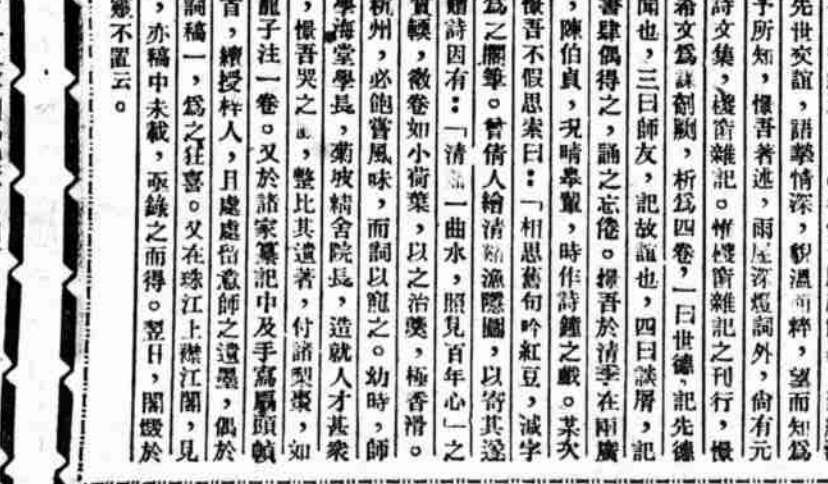 先世交誼，語摯情深，貌溫而粹，望而知爲
予所知，憬吾著述，雨屋深燈詞外，尙有元
詩文集，𣕧窗雜記。惟𣕧窗雜記之刊行，憬
希文爲謀剞劂，析爲四卷，一曰世德，記先德
聞也，三曰師友，記故誼也，四曰談屑，記
書肆偶得之，誦之忘倦。憬吾於清季在兩廣
，陳伯貞，況晴皋輩，時作詩鐘之戲。某次
憬吾不假思索曰：「相思舊句吟紅豆，減字
爲之閣筆。曾倩人繪清溪漁隱圖，以寄其遂
贈詩因有：「清溪一曲水，照見百年心」之
賞輭，徵卷如小荷葉，以之治羹，極香滑。
杭州，必飽嘗風味，而詞以寵之。幼時，師
學海堂學長，菊坡精舍院長，造就人才甚衆
，憬吾哭之，整比其遺著，付諸梨棗，如
龍子注一卷。又於諸家纂記中及手寫扇頭幀
首，續授梓人，且處處留意師之遺墨，偶於
詞稿一，爲之狂喜。又在珠江上襟江閣，見
，亦稿中未載，亟錄之而得。翌日，閣燬於
嘆不置云。